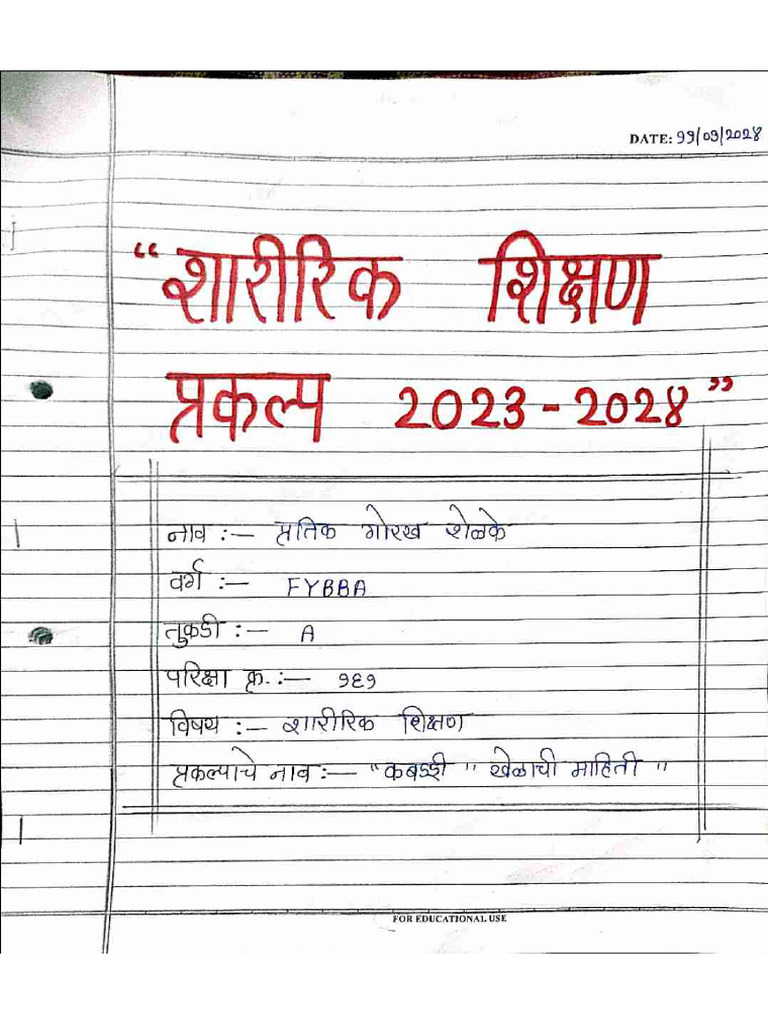 DATE: ११/०१/२०२४
“शारीरिक शिक्षण
प्रकल्प २०२३-२०२४”
नाव :— प्रतिक गोरख शेळके
वर्ग :— FYBBA
तुकडी :— A
परिक्षा क्र. :— १६१
विषय :— शारीरिक शिक्षण
प्रकल्पाचे नाव :— "कबड्डी" खेळाची माहिती"
FOR EDUCATIONAL USE